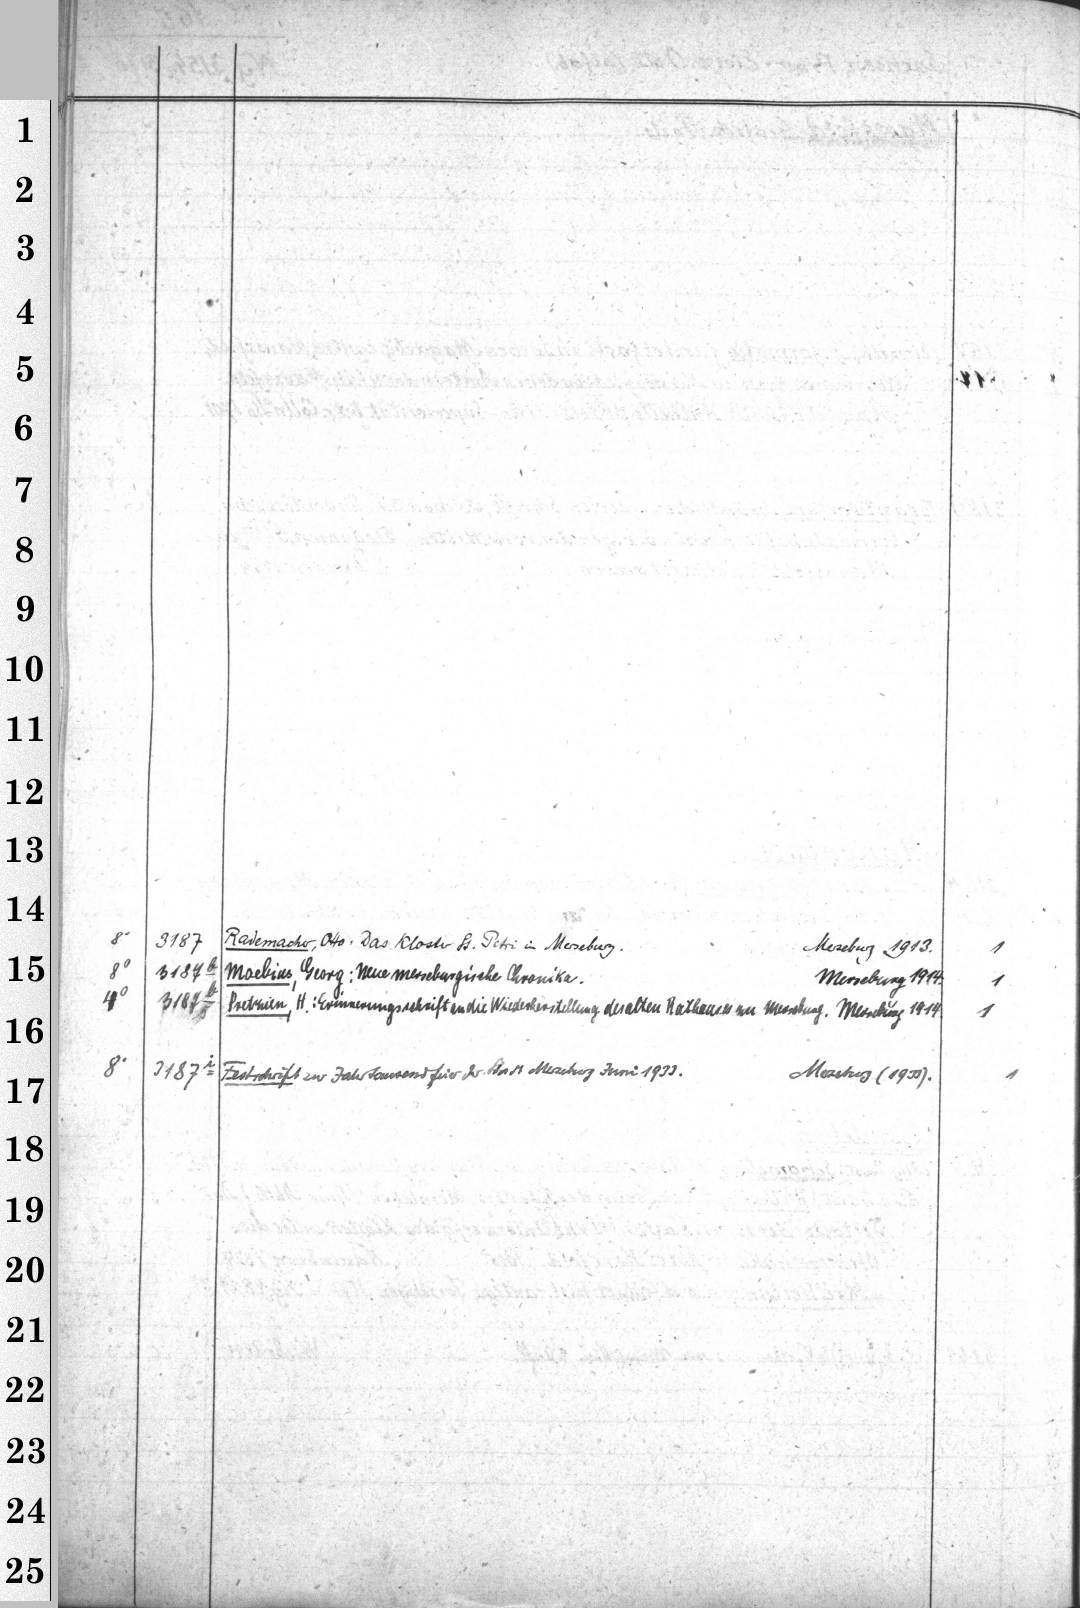 1
2
3
4
5
6
7
8
9
10
11
12
13
14
15
16
17
18
19
20
21
22
23
24
25
8° 3187 Rademacher, Otto. Das Kloster St. Petri in Merseburg. Merseburg 1913. 1
8° 3187 b Moebius, Georg: Neue merseburgische Chronika. Merseburg 1914. 1
4° 3187 H.: Erinnerungsschrift an die Wiederherstellung des alten Rathauses zu Merseburg. Merseburg 1914. 1
8° 3187 i Festschrift zur Jahrtausendfeier der Stadt Merseburg Juni 1933. Merseburg (1933). 1